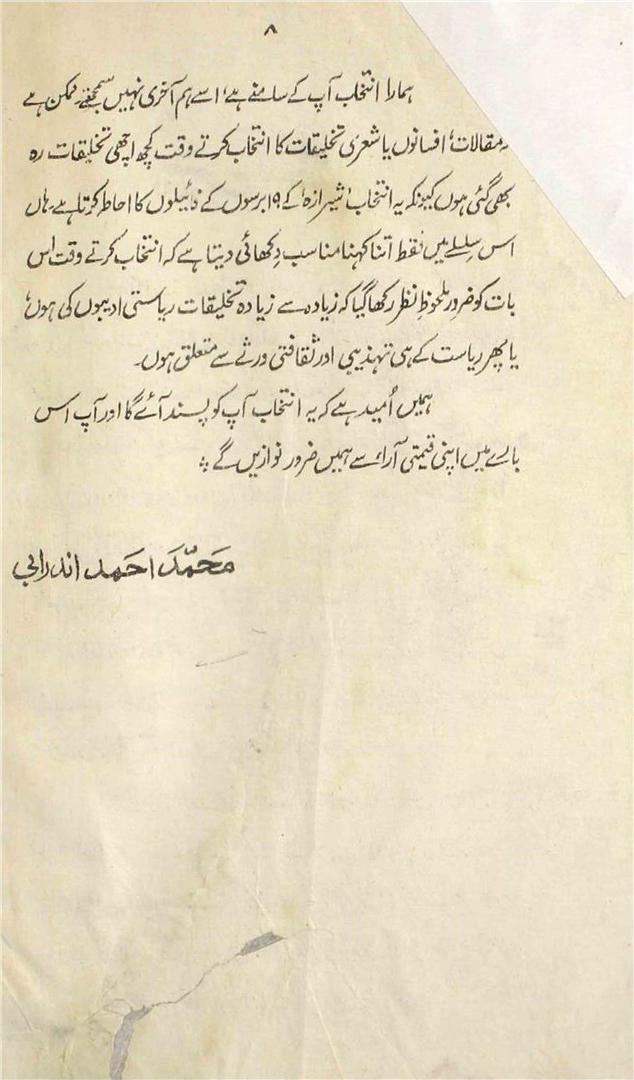 ۸
ہمارا انتخاب آپ کے سامنے ہے' اسے ہم آخری نہیں سمجھتے۔ ممکن ہے
مقالات' افسانوں یا شعری تخلیقات کا انتخاب کرتے وقت کچھ اچھی تخلیقات رہ
بھی گئی ہوں کیونکہ یہ انتخاب 'شیرازہ' کے ۱۹ برسوں کے فائیلوں کا احاطہ کرتا ہے۔ ہاں
اس سلسلے میں فقط اتنا کہنا مناسب دِکھائی دیتا ہے کہ انتخاب کرتے وقت اس
بات کو ضرور ملحوظِ نظر رکھا گیا کہ زیادہ سے زیادہ تخلیقات ریاستی ادیبوں کی ہوں'
یا پھر ریاست کے ہی تہذیبی اور ثقافتی ورثے سے متعلق ہوں۔
ہمیں اُمید ہے کہ یہ انتخاب آپ کو پسند آئے گا اور آپ اس
بارے میں اپنی قیمتی آراء سے ہمیں ضرور نوازیں گے ؞
محمّد احمد اندرابی